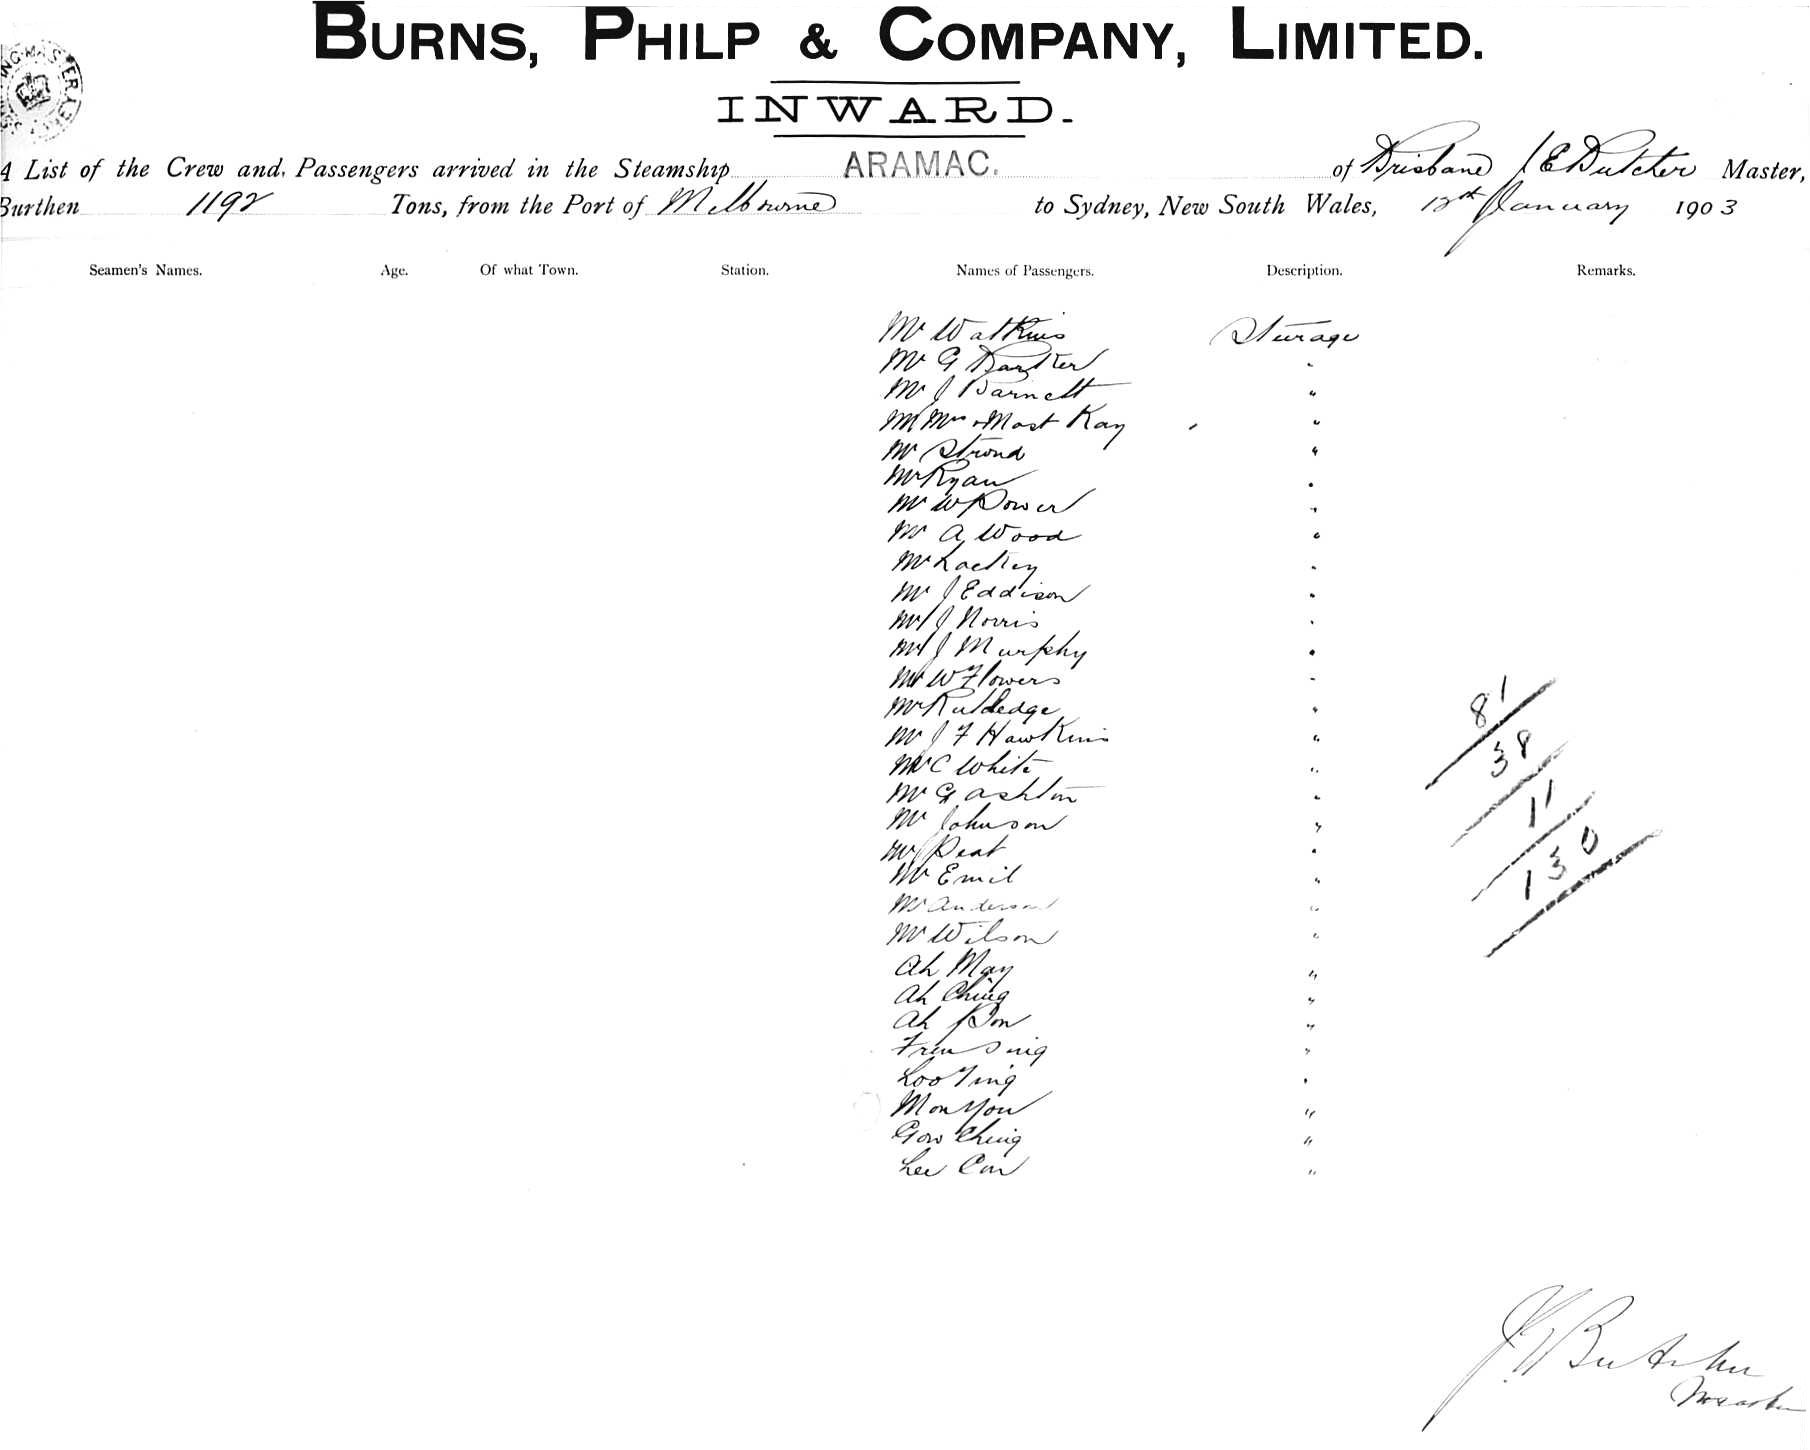 BURNS, PHILP & COMPANY, LIMITED.
INWARD.
A List of the Crew and Passengers arrived in the Steamship ARAMAC. of Brisbane J E Butcher Master,
Burthen 1192 Tons, from the Port of Melbourne to Sydney, New South Wales, 12th January 1903
Seamen's Names. Age. Of what Town. Station. Names of Passengers. Description. Remarks.
Mr Watkins Steurage
Mr G Barker "
Mr J Barnett "
Mr Mrs + Mast Kay "
Mr Strond "
Mr Ryan "
Mr W Power "
Mr A Wood "
Mr Lackey "
Mr J Eddison "
Mr J Norris "
Mr J Murphy "
Mr W Flowers "
Mr Rutledge "
Mr J F Hawkins "
Mr C White "
Mr G Ashton "
Mr Johnson "
Mr Peat "
Mr Emil "
Mr Anderson "
Mr Wilson "
Ah May "
Ah Ching "
Ah Pon "
Sing "
Loo Ting "
Mon You "
Gow Ching "
Lee Con "
81
38
11
130
J E Butcher
Master